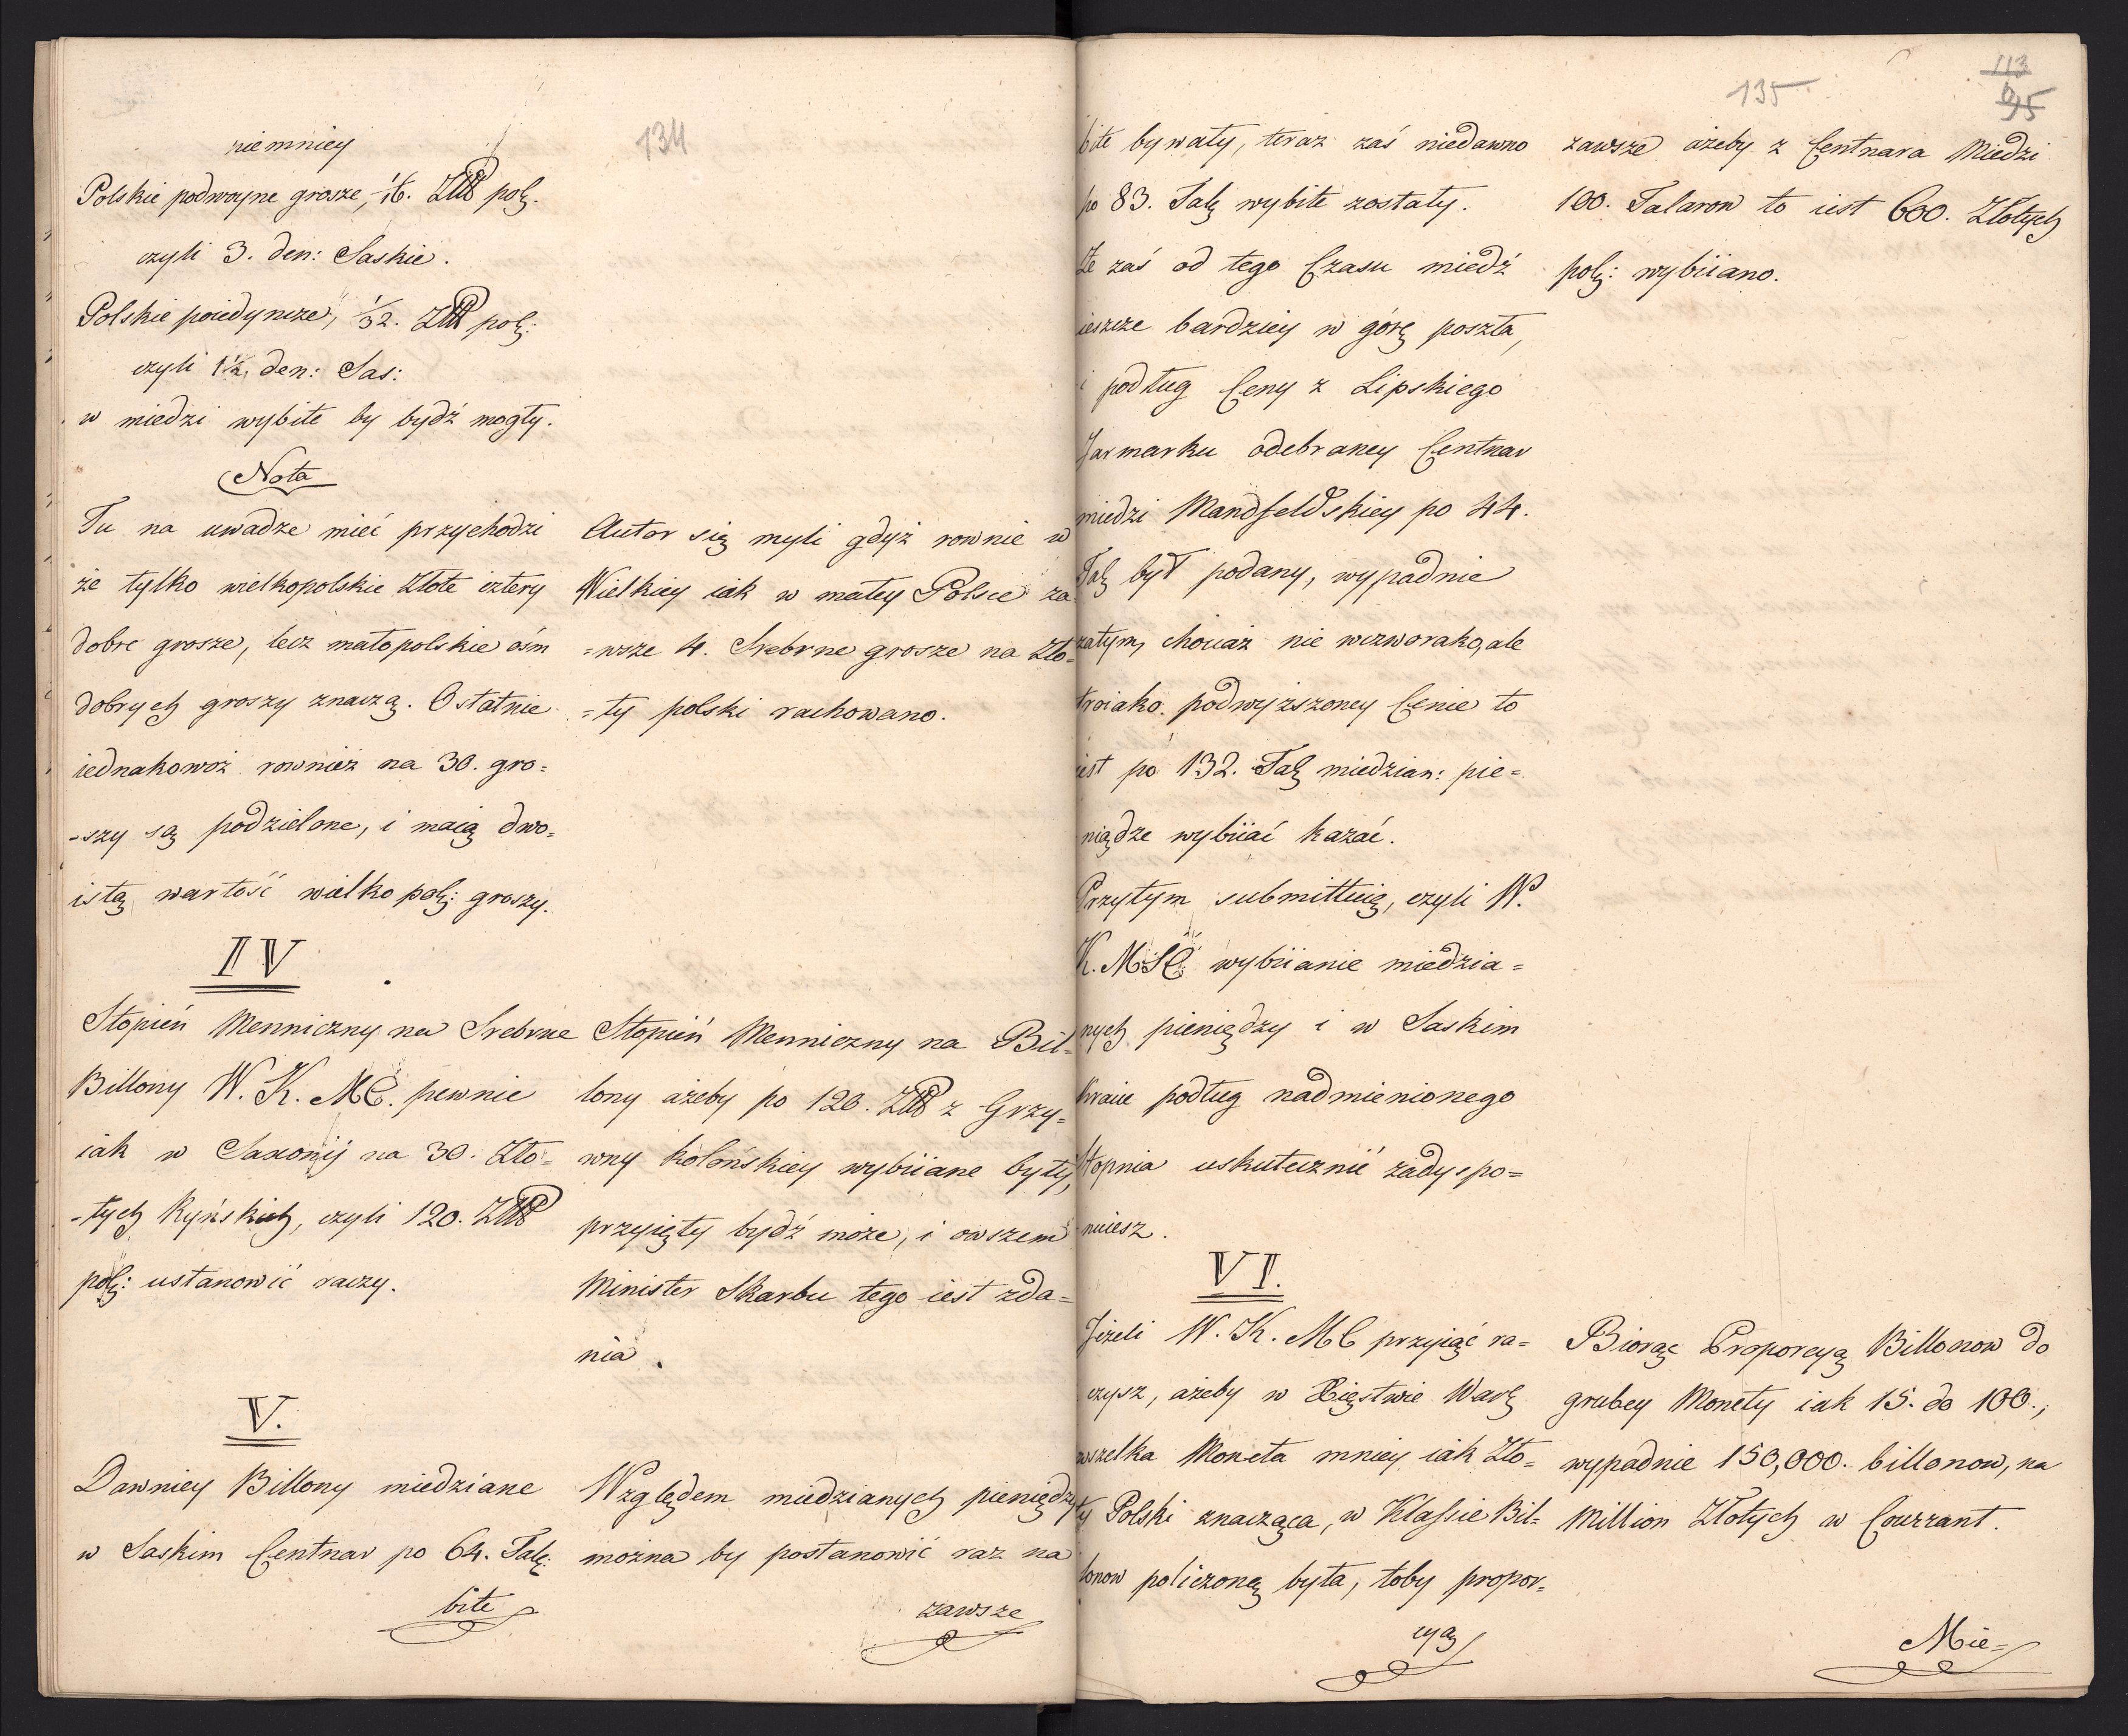 134
niemniey
Polskie podwoyne grosze, 1/16. Złł pol:
czyli 3. den: Saskie.
Polskie poiedyncze, 1/32. Złł pol:
czyli 1½ den: Sas:
w miedzi wybite by bydź mogły.
Nota
Tu na uwadze mieć przychodzi
że tylko wielkopolskie złote cztery
dobre grosze, lecz małopolskie ośm
dobrych groszy znaczą. Ostatnie
iednakowoż rownież na 30. gro=
=szy są podzielone, i maią dwo=
istą wartość wielko pol: groszy.
Autor się myli gdyż rownie w
Wielkiey iak w małey Polsce za
=wsze 4. Srebrne grosze na Zło=
=ty polski rachowano.
IV
Stopień Menniczny na Srebrne
Billony W. K. MC. pewnie
iak w Saxonij na 30. Zło=
=tych Ryńskich, czyli 120. Złł
pol: ustanowić raczy.
Stopień Menniczny na Bil=
lony ażeby po 120. Złł z Grzy=
wny kolońskiey wybiiane były,
przyięty bydź może, i owszem
Minister Skarbu tego iest zda=
nia.
V.
Dawniey Billony miedziane
w Saskim Centnar po 64. Tal:
bite
Względem miedzianych pieniędzy
można by postanowić raz na
zawsze
135
113
95
bite bywały, teraz zaś niedawno
po 83. Tal: wybite zostały.
Że zaś od tego Czasu miedź
ieszcze bardziey w górę poszła,
i podług Ceny z Lipskiego
Jarmarku odebraney Centnar
miedzi Mandfeldskiey po 44.
Tal: był podany, wypadnie
zatym, chociaż nie wczworako, ale
troiako podwyższoney Cenie to
iest po 132. Tal: miedzian: pie=
niądze wybiiać kazać.
Przytym submittuię, czyli W.
K. MSC wybiianie miedzia=
nych pieniędzy i w Saskim
kraiu podług nadmienionego
Stopnia uskutecznić zadyspo=
nuiesz.
zawsze ażeby z Centnara Miedzi
100. Talarow to iest 600. Złotych
pol: wybiiano.
VI.
Jeżeli W. K. MC przyiąć ra=
czysz, ażeby w Xięstwie War:
wszelka Moneta mniey iak Zło=
ty Polski znacząca, w Klassie Bil=
lonow policzoną była, toby propor=
cya
Biorąc Proporcyą Billonow do
grubey Monety iak 15. do 100.,
wypadnie 150,000. billonow, na
Million Złotych w Courrant.
Mie=